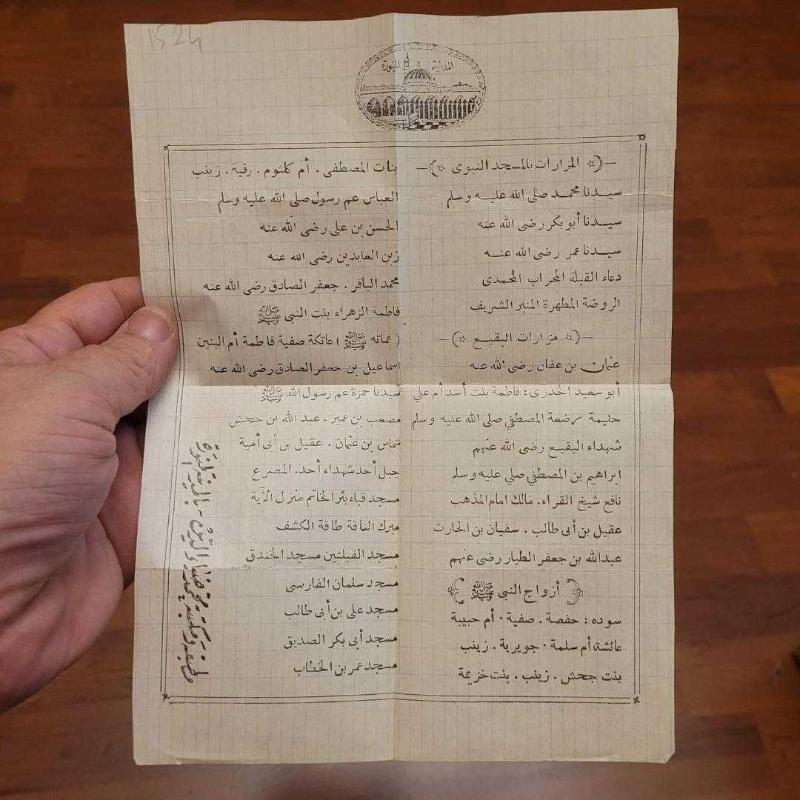 1524
المدينة المنورة
—(☆ المزارات بالمسجد النبوى ☆)—
سيدنا محمد صلى الله عليه وسلم
سيدنا أبو بكر رضى الله عنه
سيدنا عمر رضى الله عنه
دعاء القبلة المحراب المحمدى
الروضة المطهرة المنبر الشريف
—(☆ مزارات البقيع ☆)—
عثمان بن عفان رضى الله عنه
أبو سعيد الخدرى: فاطمة بنت أسد أم على
حليمة مرضعة المصطفى صلى الله عليه وسلم
شهداء البقيع رضى الله عنهم
ابراهيم بن المصطفى صلى عليه وسلم
نافع شيخ القراء. مالك امام المذهب
عقيل بن أبى طالب. سفيان بن الحارث
عبدالله بن جعفر الطيار رضى عنهم
{أزواج النبى ﷺ}
سوده: حفصة. صفية. أم حبيبة
عائشة أم سلمة. جويرية. زينب
بنت جحش. زينب. بنت خزيمة
بنات المصطفى. أم كلثوم. رقية. زينب
العباس عم رسول صلى الله عليه وسلم
الحسن بن على رضى الله عنه
زين العابدين رضى الله عنه
محمد الباقر. جعفر الصادق رضى الله عنه
فاطمة الزهراء بنت النبى ﷺ
(عماته ﷺ) عاتكة صفية فاطمة أم البنين
اسماعيل بن جعفر الصادق رضى الله عنه
سيدنا حمزة عم رسول الله ﷺ
مصعب بن عمير. عبد الله بن جحش
شماس بن عثمان. عقيل بن أبى أمية
جبل أحد شهداء أحد. المصرع
مسجد قباء بئر الخاتم منزل الآية
مبرك الناقة طاقة الكشف
مسجد القبلتين مسجد الخندق
مسجد سلمان الفارسى
مسجد على بن أبى طالب
مسجد أبى بكر الصديق
مسجد عمر بن الخطاب